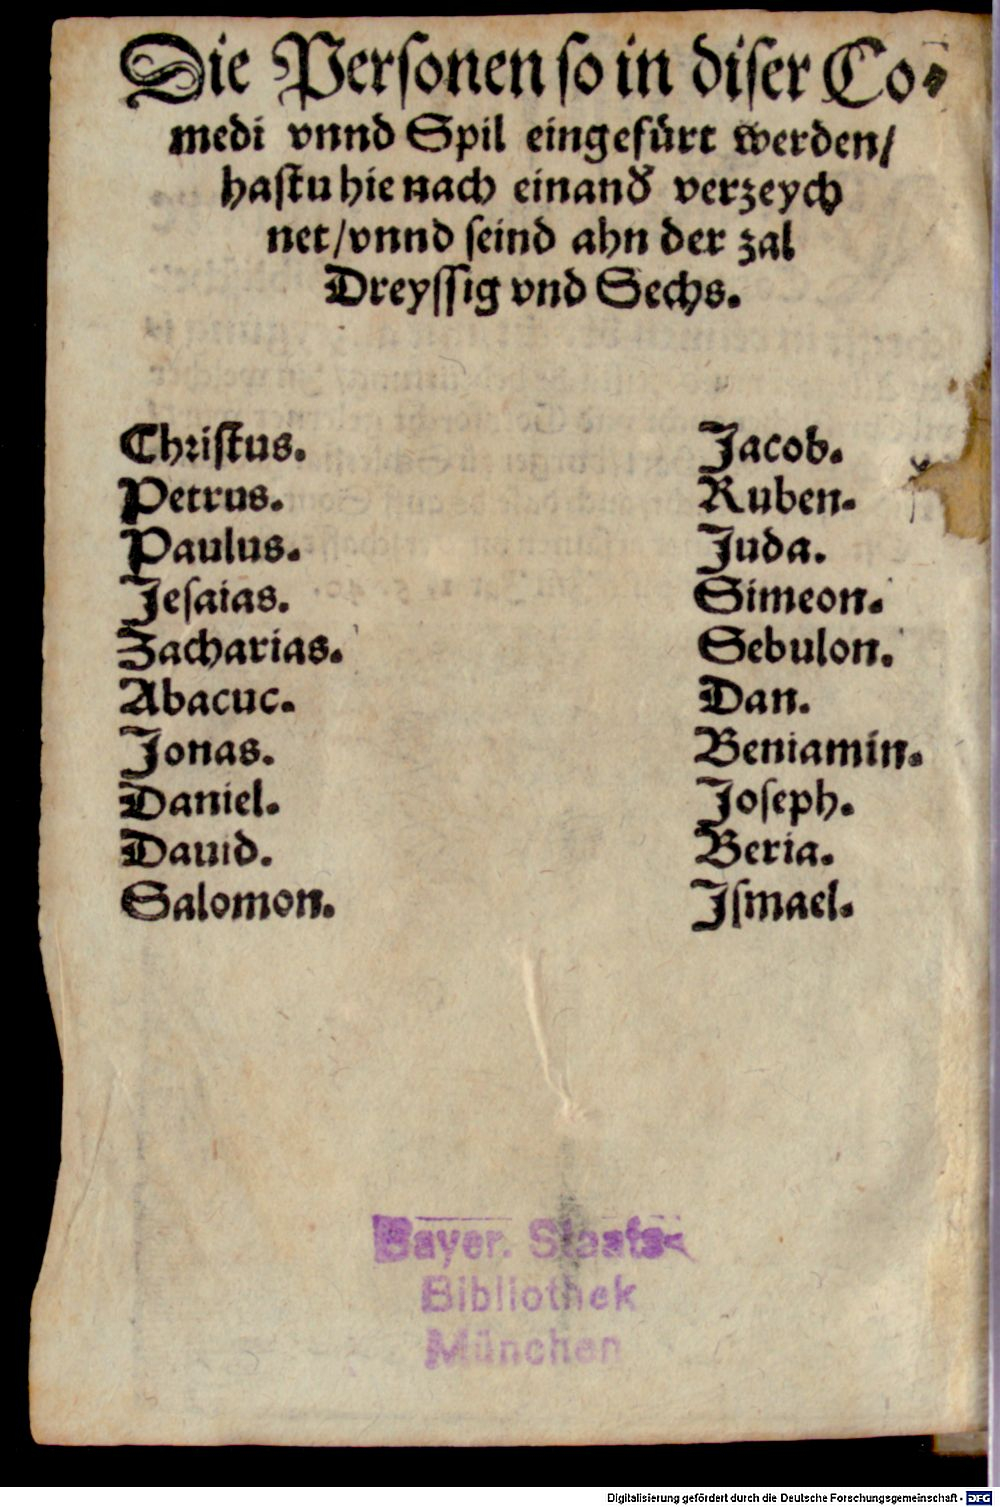 Die Personen so in diser Co-
medi vnnd Spil eingefürt werden/
hastu hie nach einand verzeych
net/vnnd seind ahn der zal
Dreyssig vnd Sechs.
Christus.
Petrus.
Paulus.
Jesaias.
Zacharias.
Abacuc.
Jonas.
Daniel.
Dauid.
Salomon.
Jacob.
Ruben.
Juda.
Simeon.
Sebulon.
Dan.
Beniamin.
Joseph.
Beria.
Ismael.
Bayer. Staats-
Bibliothek
München
Digitalisierung gefördert durch die Deutsche Forschungsgemeinschaft - DFG